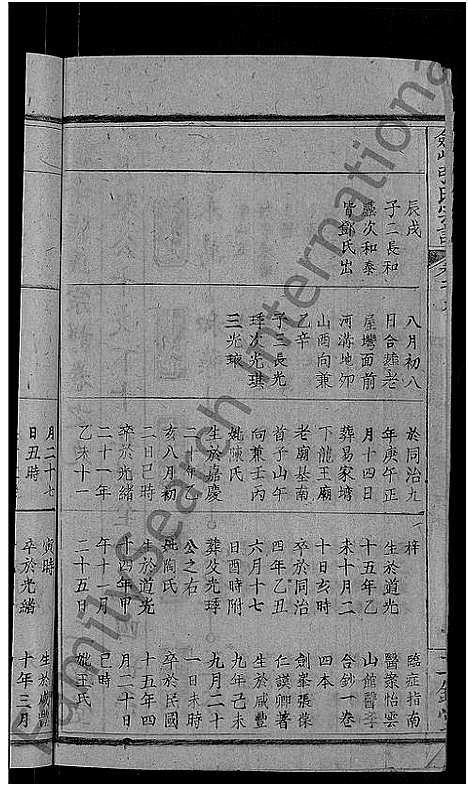 辰戌
子二長和
盛次和泰
皆鄧氏出
八月初八
日合葬老
屋灣面前
河溝地卯
山酉向兼
乙辛
子三長光
次光琪
三光
於同治九
年庚午正
月十四日
葬易家塘
下龍王廟
老廟基南
首子山午
向兼壬丙
妣陳氏
生於嘉慶
二十年乙
亥八月初
二日巳時
卒於光緒
二十一年
乙未十一
月二十七
日丑時
梓
生於道光
十五年乙
未十月二
十日亥時
卒於同治
四年乙丑
六月十七
日酉時附
葬父光
公之右
妣陶氏
生於道光
十四年甲
午十一月
二十五日
寅時
卒於光緒
臨症指南
醫案怡雲
山館醫學
合鈔一卷
四本
劍峯張葆
仁謨卿著
生於咸豐
九年己未
九月二十
一日未時
卒於民國
十五年四
月二十日
巳時
妣王氏
生於咸豐
十年三月
FamilySearch International